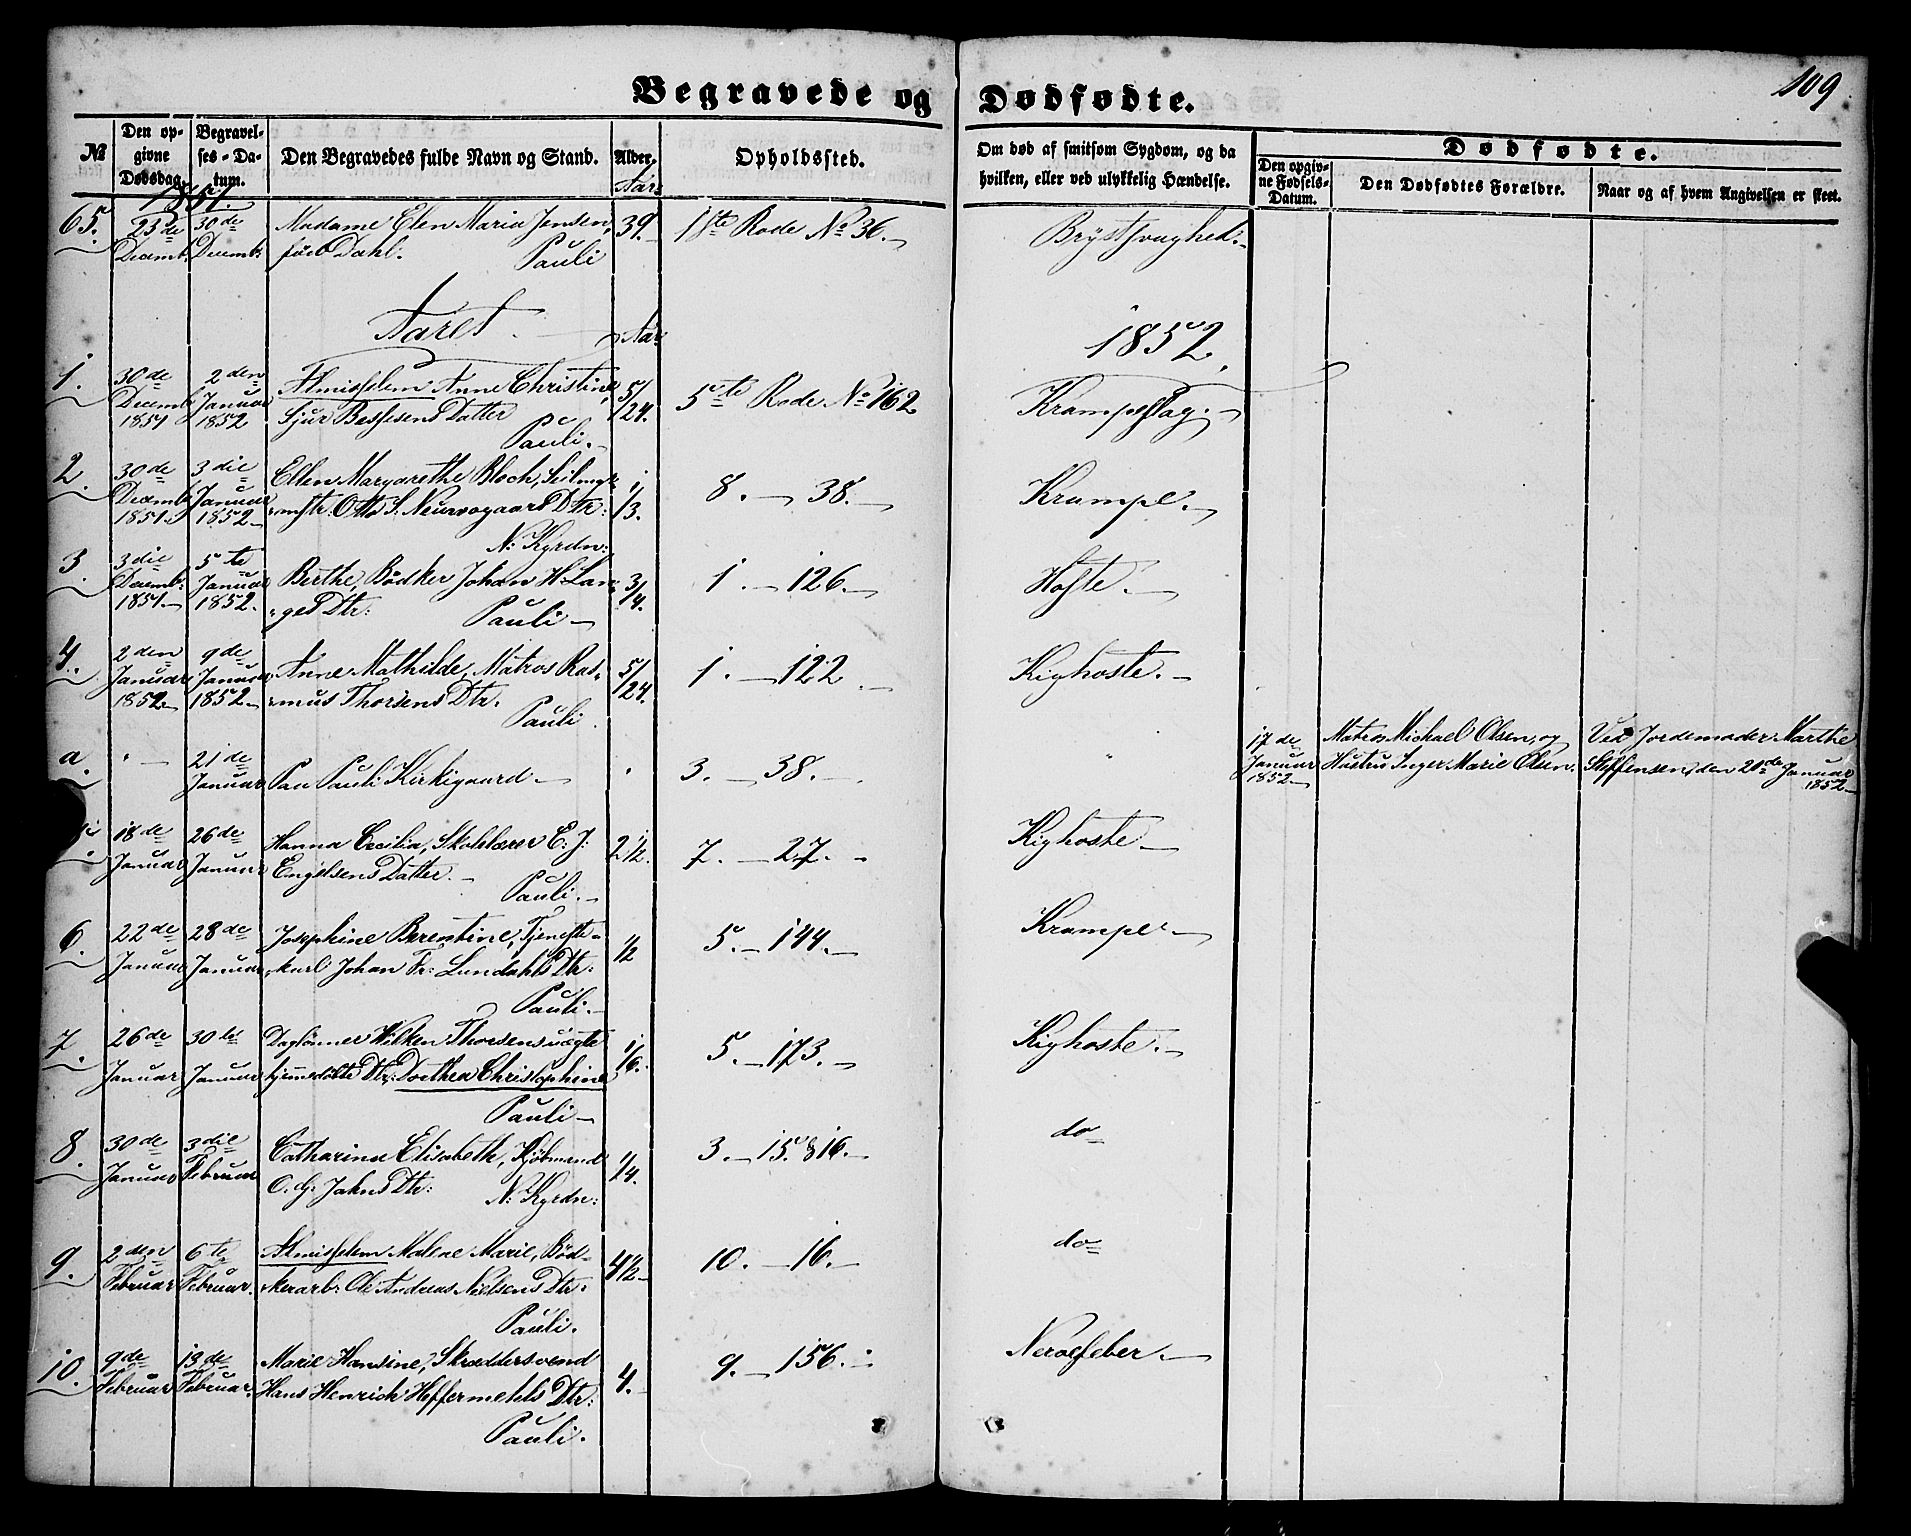 109
Begravede og Dødfødte.
№
Den opgivne Dødsdag.
Begravelses-Datum.
Den Begravedes fulde Navn og Stand.
Alder.
Opholdssted.
Om død af smitsom Sygdom, og da hvilken, eller ved ulykkelig Hændelse.
Dødfødte.
Den opgivne Fødsels-Datum.
Den Dødfødtes Forældre.
Naar og af hvem Angivelsen er skeet.
1851. Aar
65. 23de 30de Madame Elen Maria Jensen, 39. 1ste Rode No 36. Brystsvaghed.
Decemb. Decemb: født Dahl. Pauli
Aaret 1852.
Aar
1. 30de 2den Almisselem Anne Christine, 5/24. 5te Rode No 162 Krampeslag.
Decemb. Januar Sjur Bessesens Datter
1851 1852 Pauli.
2. 30de 3die Ellen Margarethe Bloch, Seilmag- 1/3. 8. 38. Krampe.
Decemb. Januar mstr: Otto S. Dtr:
1851. 1852. N: Kyrdn:
3. 3die 5te Berthe, Bødker Johan H. Lan- 3/4. 1. 126. Hoste.
Decemb: Januar ges Dtr: Pauli
1851. 1852.
4. 2den 9de Anne Mathilde, Matros Ras- 5/24. 1. 122. Kighoste.
Januar Januar mus Thorsens Dtr.
1852. 1852. Pauli.
a. " 21de Paa Pauli Kirkigaard " 3. 38. "
Januar
17de Januar 1852. Matros Michael Olsen, og Ved Jordemoder Marthe
Hustru Inger Marie Olsen. Steffensen, den 20de Januar 1852.
18de 26de Hanna Cecilia, Skolelærer E. J. 2 1/2. 7. 27. Kighoste
Januar Januar Engelsens Datter.
Pauli.
6. 22de 28de Josephine Berentine, Tjeneste- 1/2 5. 144. Krampe
Januar Januar karl Johan Fr: Lundahls Dtr:
Pauli.
7. 26de 30te Daglønner Wilken Thorsens uægte 1/6. 5. 173. Kighoste.
Januar Januar hjemmedøbte Dtr: Dorthea Christophine
Pauli
8. 30de 3die Catharina Elisabeth, Kjøbmand 1/4. 3. 15. & 16. do
Januar Februar C. G. Jahns Dtr: N: Kyrdn:
9. 2den 6te Almisselem Malene Marie, Bød- 4 1/2 10. 16. do
Februar Februar. kerarb: Ole Andreas Nielsens Dtr.
Pauli.
10. 9de 13de Marie Hansine, Skræddersvend 4. 9. 156. Nervefeber.
Februar Februar. Hans Henrich Heffermehls Dtr:
Pauli.